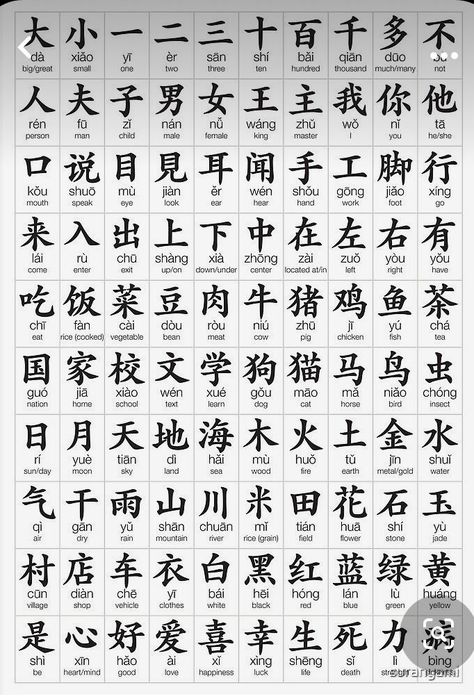 大 小 一 二 三 十 百 千 多 不
dà xiǎo yī èr sān shí bǎi qiān duō
big/great small one two three ten hundred thousand much/many not
人 夫 子 男 女 王 主 我 你 他
rén fū zǐ nán nǚ wáng zhǔ wǒ nǐ tā
person man child male female king master I you he/she
口 说 目 見 耳 闻 手 工 脚 行
kǒu shuō mù jiàn ěr wén shǒu gōng jiǎo xíng
mouth speak eye look ear hear hand work foot go
来 入 出 上 下 中 在 左 右 有
lái rù chū shàng xià zhōng zài zuǒ yòu yǒu
come enter exit up/on down/under center located at/in left right have
吃 饭 菜 豆 肉 牛 猪 鸡 鱼 茶
chī fàn cài dòu ròu niú zhū jī yú chá
eat rice (cooked) vegetable bean meat cow pig chicken fish tea
国 家 校 文 学 狗 猫 马 鸟 虫
guó jiā xiào wén xué gǒu māo mǎ niǎo chóng
nation home school text learn dog cat horse bird insect
日 月 天 地 海 木 火 土 金 水
rí yuè tiān dì hǎi mù huǒ tǔ jīn shuǐ
sun/day moon sky land sea wood fire earth metal/gold water
气 干 雨 山 川 米 田 花 石 玉
qì gān yǔ shān chuān mǐ tián huā shí yù
air dry rain mountain river rice (grain) field flower stone jade
村 店 车 衣 白 黑 红 蓝 绿 黄
cūn diàn chē yī bái hēi hóng lán lù huáng
village shop vehicle clothes white black red blue green yellow
是 心 好 爱 喜 幸 生 死 力 病
shì xīn hǎo ài xǐ xìng shēng sǐ lì bìng
be heart/mind good love happiness luck life death